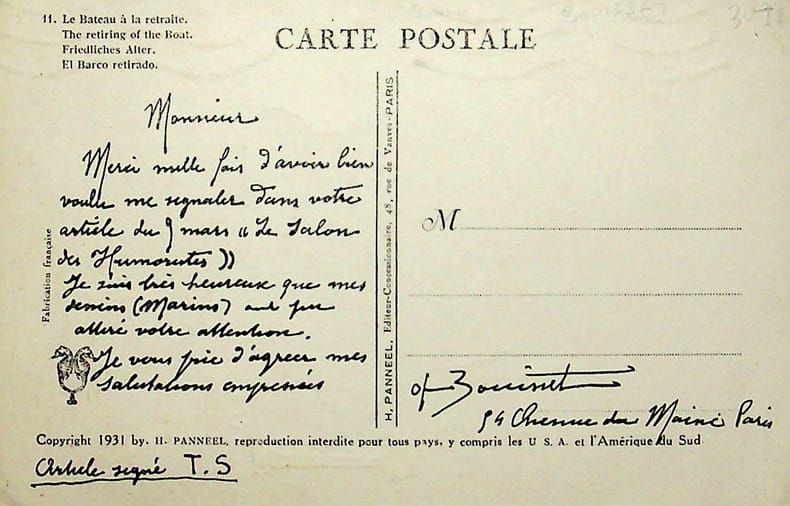 11. Le Bateau à la retraite.
The retiring of the Boat.
Friedliches Alter.
El Barco retirado.
CARTE POSTALE
Monsieur
Merci mille fois d'avoir bien
voulu me signaler dans votre
article du 9 mars "Le Salon
des Humoristes"
Je suis très heureux que mes
dessins (Marins) ont pu
attiré votre attention.
Je vous prie d'agréer mes
salutations empressées
Fabrication française
H. PANNEEL, Editeur-Concessionnaire, 48, rue de Vanves - PARIS
M
Bouinet
54 Avenue du Maine Paris
Copyright 1931 by. H. PANNEEL, reproduction interdite pour tous pays, y compris les U S. A. et l'Amérique du Sud
Article signé T. S